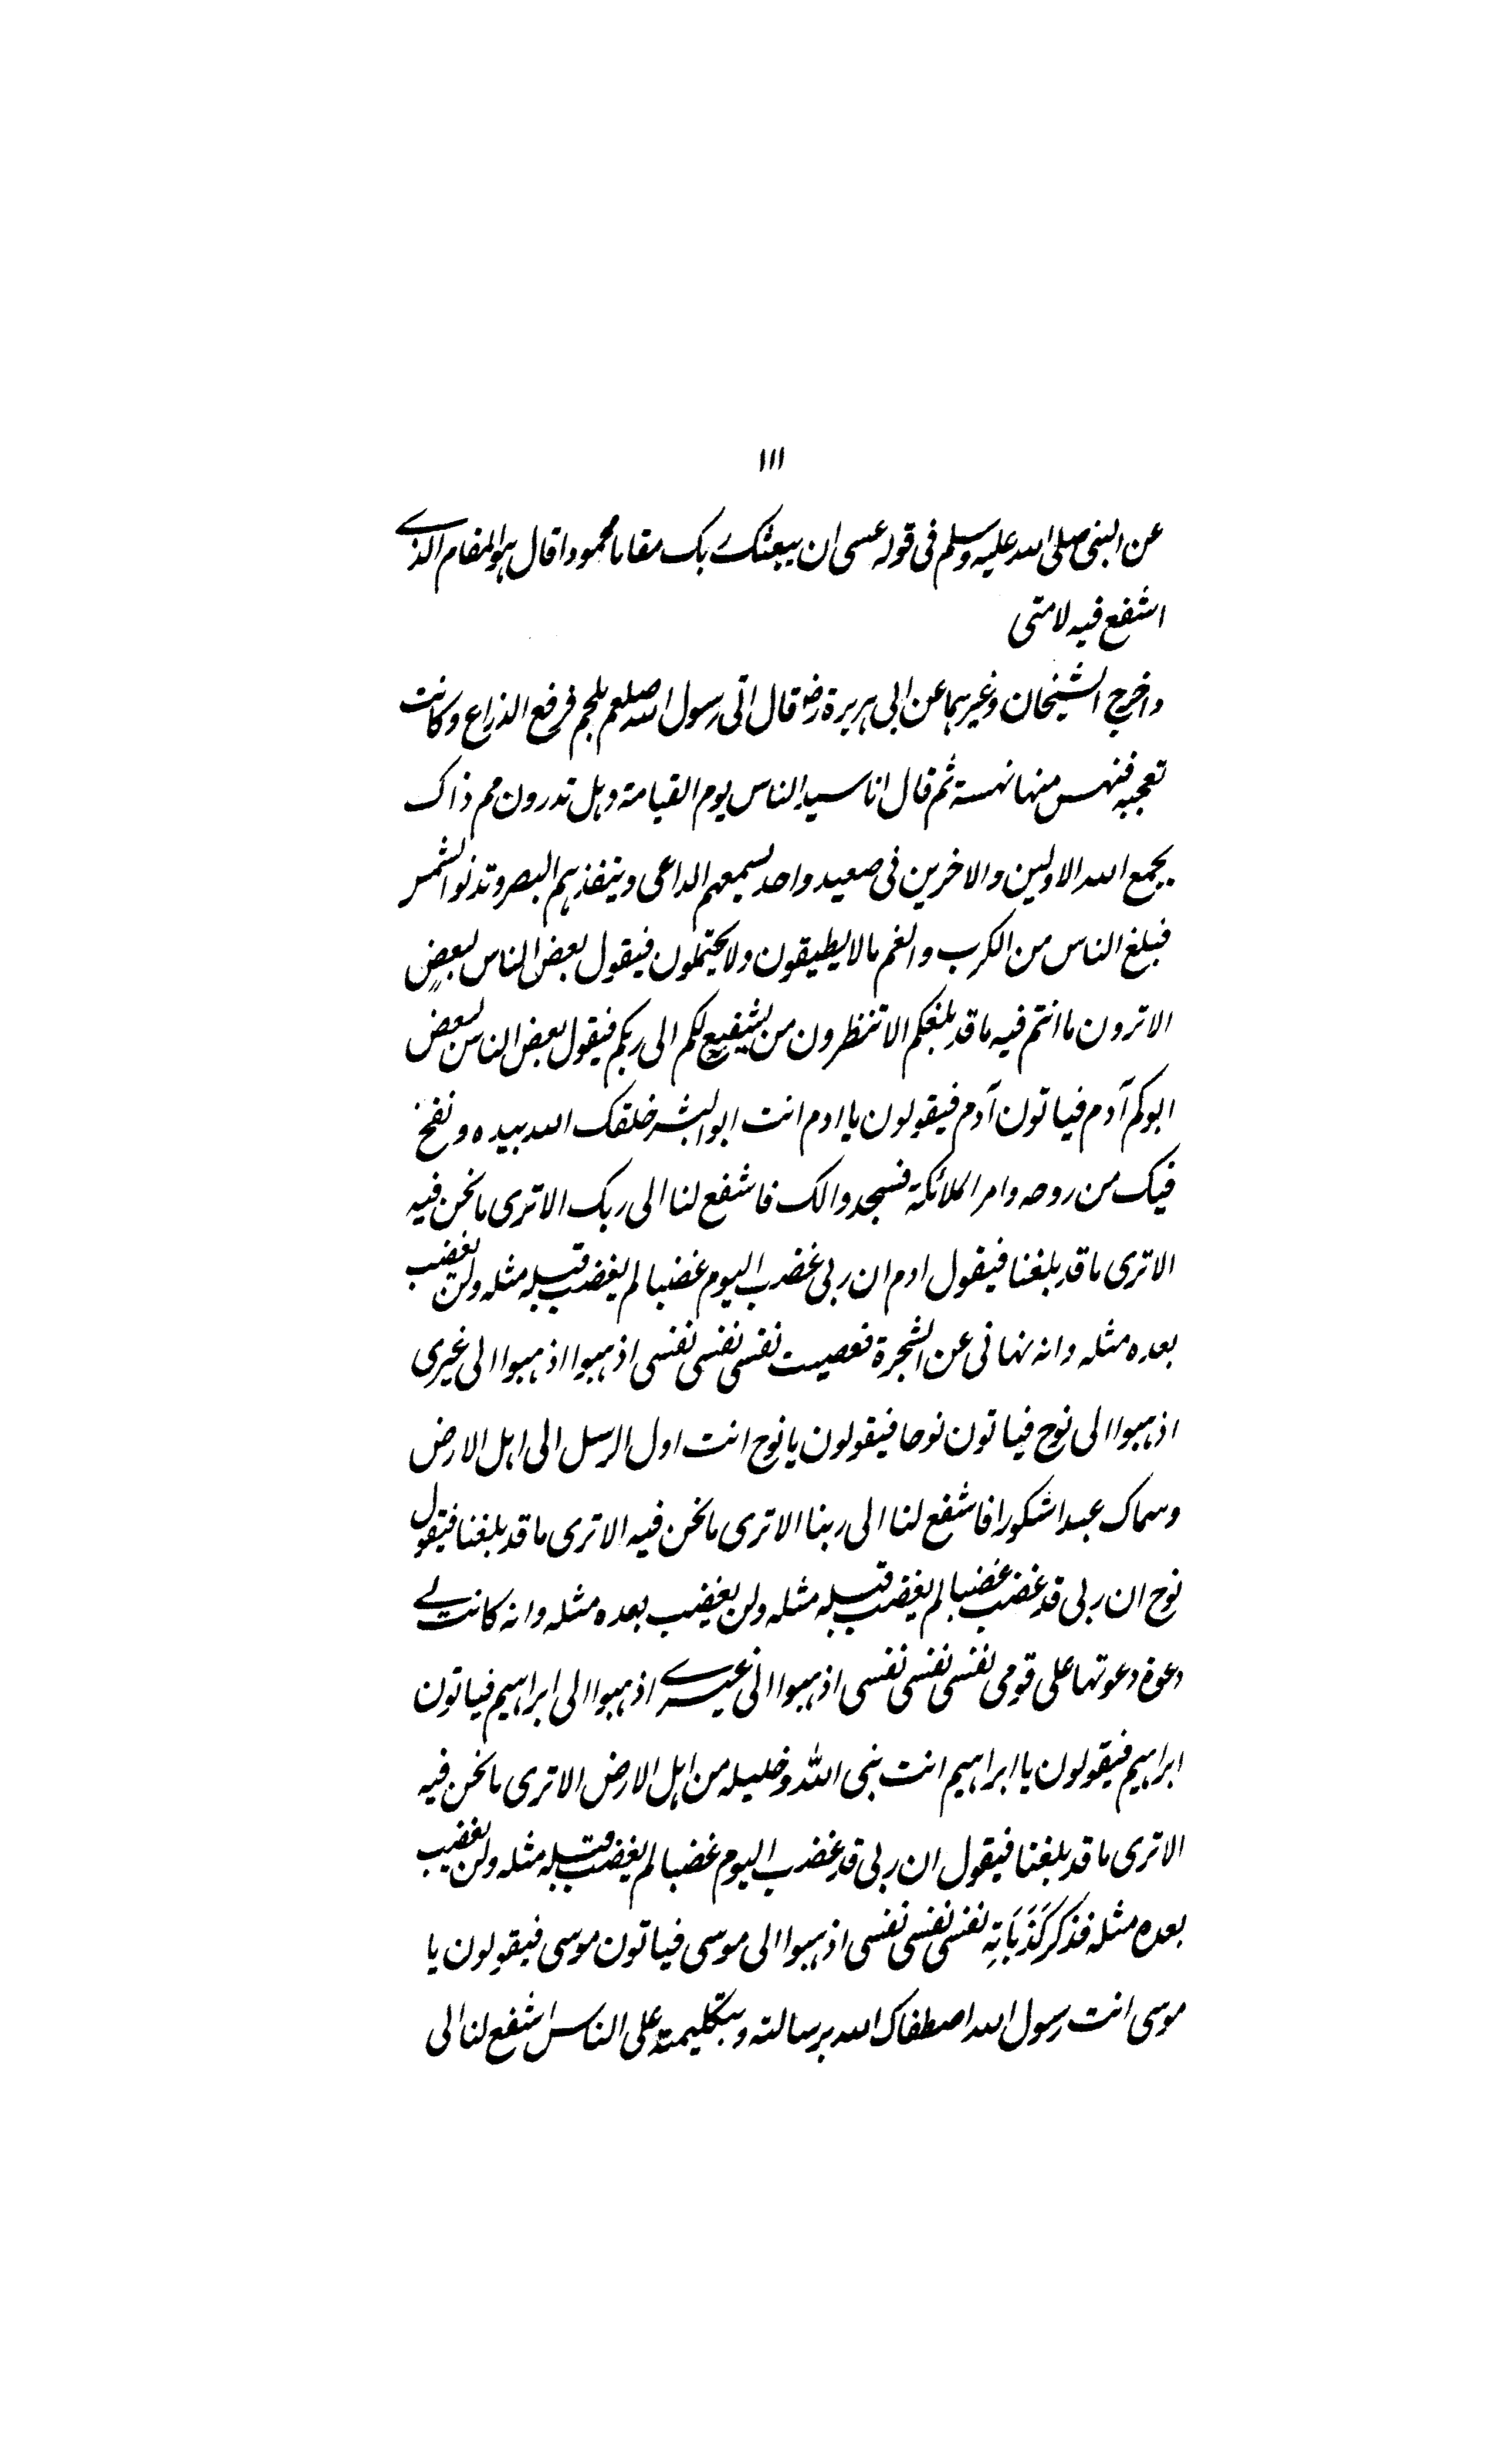 ۱۱۱
عن النبی صلی الله علیه وسلم فی قوله عسی ان یبعثک ربک مقاما محمودا قال هو المقام الذے
اشفع فیه لامتی
واخرج الشیخان وغیرهما عن ابی هریرة رض قال اتی رسول الله صلعم بلحم فرفع الذراع وکانت
تعجبه فنهس منها نهسة ثم قال انا سید الناس یوم القیامة وهل تدرون مم ذاک
یجمع الله الاولین والاخرین فی صعید واحد یسمعهم الداعی وینفذهم البصر وتدنوا الشمس
فیبلغ الناس من الکرب والغم مالا یطیقون ولا یحتملون فیقول بعض الناس لبعضٍ
الا ترون ما انتم فیه ما قد بلغکم الا تنظرون من یشفیع لکم الی ربکم فیقول بعض الناس لبعض
ابوکم آدم فیاتون آدم فیقولون یا ادم انت ابو البشر خلقک الله بیده ونفخ
فیک من روحه وامر الملائکة فسجدوا لک فاشفع لنا الی ربک الا تری ما نحن فیه
الا تری ما قد بلغنا فیقول ادم ان ربی غضب الیوم غضبا لم یغضب قبله مثله ولن یغضب
بعده مثله وانه نهانی عن الشجرة فعصیت نفسی نفسی نفسی اذهبوا اذهبوا الی غیری
اذهبوا الی نوح فیاتون نوحا فیقولون یا نوح انت اول الرسل الی اهل الارض
وسماک عبدا شکورا فاشفع لنا الی ربنا الا تری ما نحن فیه الا تری ما قد بلغنا فیقول
نوح ان ربی قد غضب غضبا لم یغضب قبله مثله ولن یغضب بعده مثله وانه کانت لے
دعوة دعوتها علی قومی نفسی نفسی نفسی اذهبوا الی غیرے اذهبوا الی ابراهیم فیاتون
ابراهیم فیقولون یا ابراهیم انت نبی الله وخلیله من اهل الارض الا تری ما نحن فیه
الا تری ما قد بلغنا فیقول ان ربی قد غضب الیوم غضبا لم یغضب قبله مثله ولن یغضب
بعده مثله فذکر کَذَبَاتِه نفسی نفسی نفسی اذهبوا الی موسی فیاتون موسی فیقولون یا
موسی انت رسول الله اصطفاک الله برسالته وبتکلیمته علی الناس اشفع لنا الی